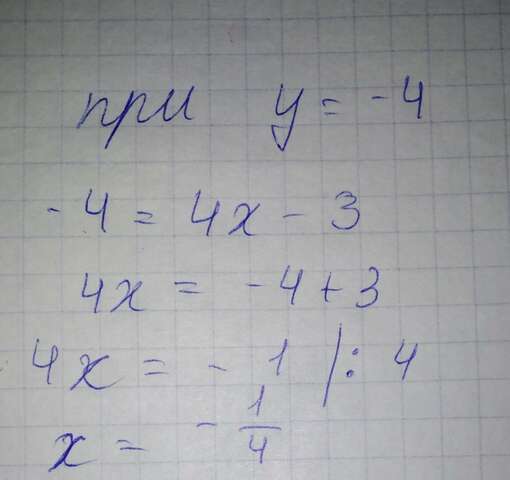 при y = -4
-4 = 4x - 3
4x = -4 + 3
4x = -1 /: 4
x = - 1/4